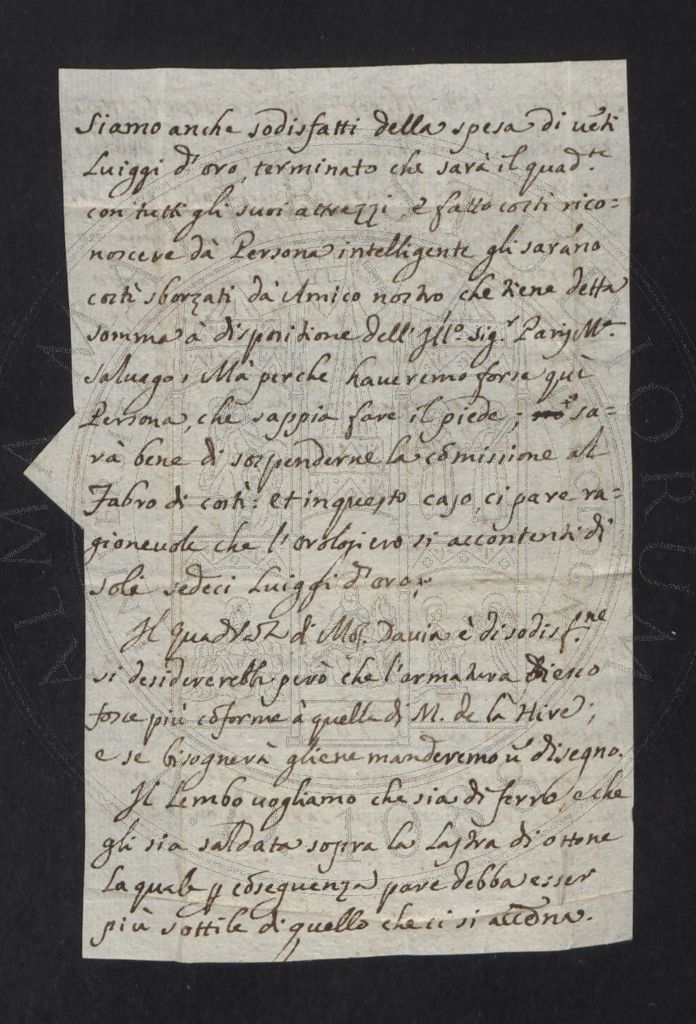 Siamo anche sodisfatti della spesa di uẽti
Luiggi d'oro, terminato che sarà il quad.te
con tutti gli suoi attrezzi e fatto costì rico=
noscere dà Persona intelligente gli sarãno
costì sborzati dà Amico nostro che tiene detta
somma à dispositione dell' Ill.o sig.r Paris M.a
saluago, Mà perche haueremo forse quì
Persona, che sappia fare il piede; sa=
rà bene di sospenderne la cõmissione al
Fabro di costì: et in questo caso, ci pare ra=
gioneuole che l'orologiero si accontenti di
soli sedeci Luiggi d'oro,
Il quad di Mo. Dauia è di sodisf.ne
si desidererebbe però che l'armatura
fosse più cõforme à quella di M. de la Hire;
e se bisognerà gliene manderemo ũ disegno.
Il Lembo uogliamo che sia di ferro, e che
gli sia saldata sopra la Lastra di ottone
la quale p cõseguenza pare debba esser
più sottile di quello che ci si accẽna.